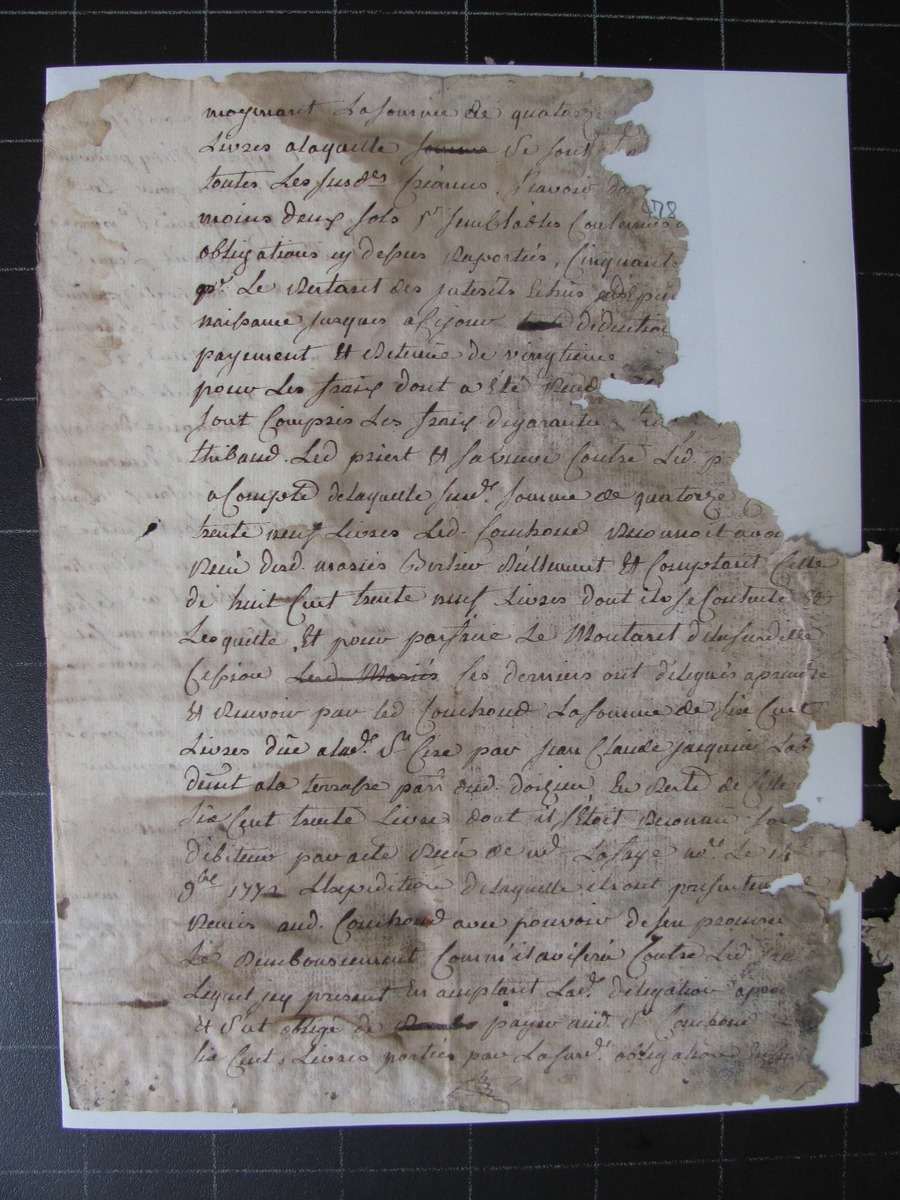 moyenant La somme de quatorze
Livres alaquelle somme se sont
toutes Les susd.es Créances, Scavoir
178
moins deux sols p.r semblables Contenu
obligations cy dessus Raportés, Cinquante
p.r Le Restant des interets Echus
naissance jusques acejour deduction
payement Et Retenue de vingtieme
pour Les fraix dont a été
sont Compris Les fraix de garantie
thibaud. Led priert Et sa veuve Contre Led p
a Compte de laquelle susd.e somme de quatorze
trente neuf Livres Led. Couhoud Reconnoit avoir
Reçu desd. mariés Réellement Et Comptant Celle
de huit Cent trente neuf Livres dont il se Contente
Lesquitte, Et pour parfaire Le Montant de la susditte
Cession Lesd Mariés Ces derniers ont délegués aprendre
Et Recevoir par led Couhoud La somme de six Cent
Livres düe alad.e par jean Claude jacquin Lab
deurt ala terrasse En Reste de Celle
six Cent trente Livres dont il s'Etoit Reconnu
débiteur par acte Reçu de m.e Lafaye no.re Le 14
9.bre 1772 L'Expédition de laquelle ils ont presentement
Remis aud. Couhoud avec pouvoir de s'en procurer
Le Remboursement Comm'il avisera Contre Led
Lequel icy present En acceptant Lad.e délégation
Et s'est obligé de payer aud. S.r Couhoud
six Cent Livres portées par La susd.e obligation